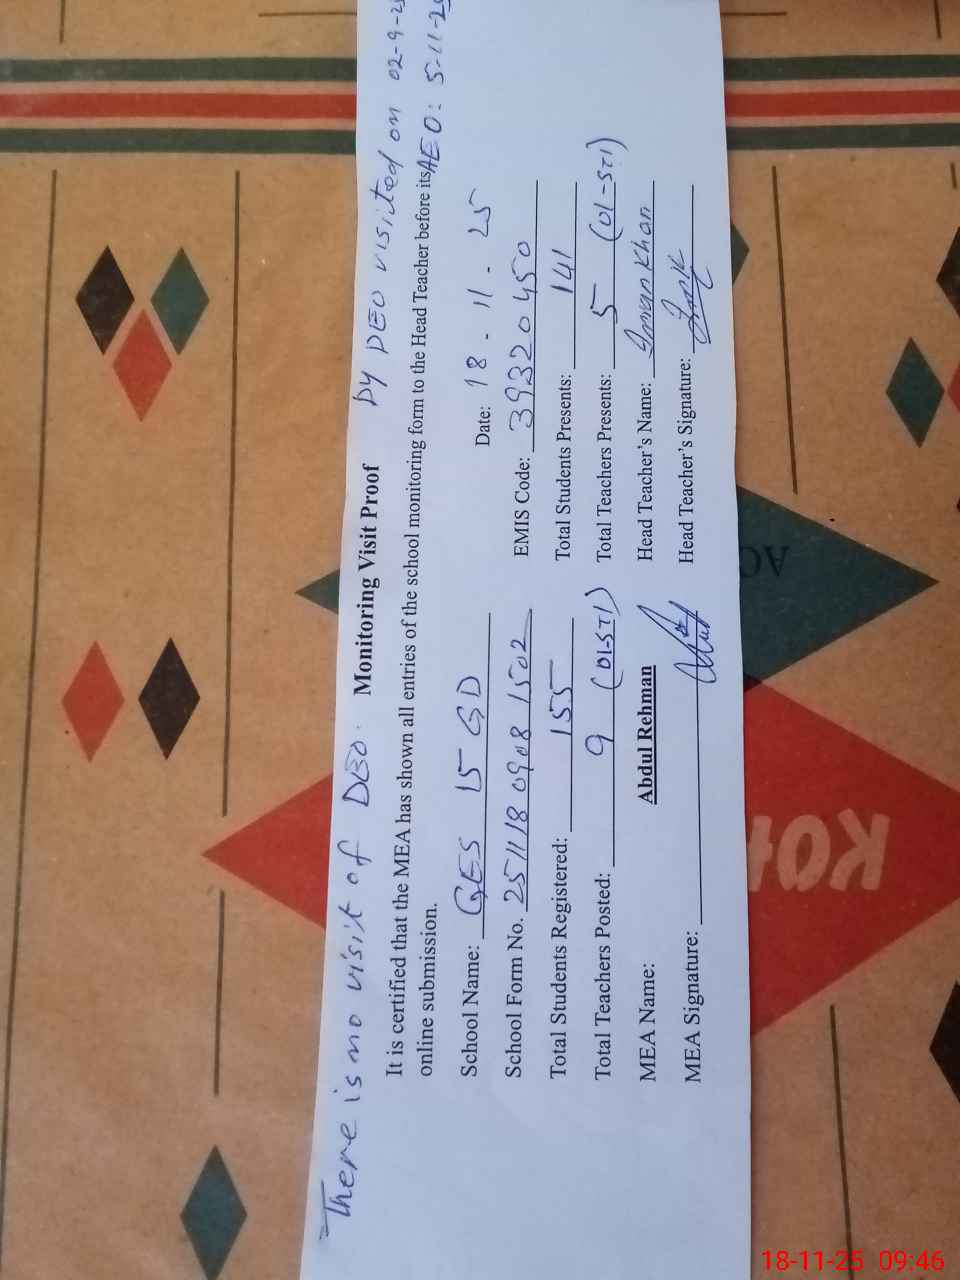 There is no visit of DEO. by DEO visited on 02-9-25
Monitoring Visit Proof
AEO: 5-11-25
It is certified that the MEA has shown all entries of the school monitoring form to the Head Teacher before its
online submission.
Date: 18-11-25
School Name: GES 15 GD
School Form No. 251118 0908 1502 EMIS Code: 39320450
Total Students Registered: 155 Total Students Presents: 141
Total Teachers Posted: 9 (01-STI) Total Teachers Presents: 5 (01-STI)
MEA Name: Abdul Rehman Head Teacher's Name: Imran Khan
MEA Signature: Head Teacher's Signature:
KOH
AC
18-11-25 09:46